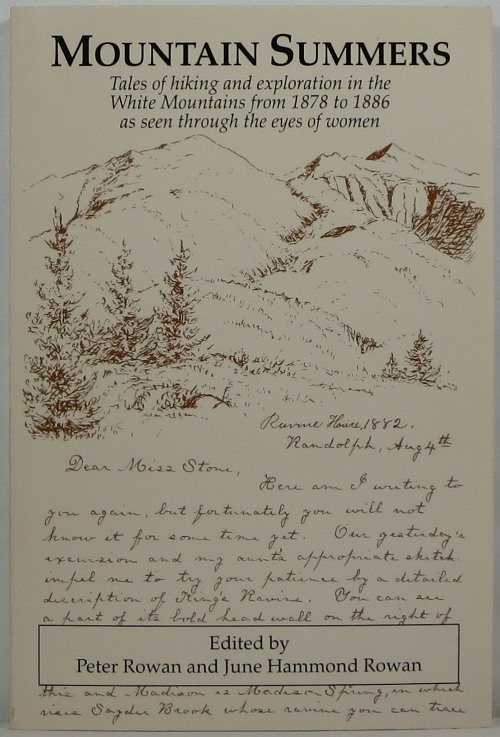 MOUNTAIN SUMMERS
Tales of hiking and exploration in the
White Mountains from 1878 to 1886
as seen through the eyes of women
Ravine House, 1882.
Randolph, Aug 4th
Dear Miss Stone,
Here am I writing to
you again, but fortunately you will not
know it for some time yet. Our yesterday's
excursion and my aunt's appropriate sketch
impel me to try your patience by a detailed
description of King's Ravine. You can see
a part of its bold head wall on the right of
Edited by
Peter Rowan and June Hammond Rowan
this and Madison is Madison Spring, in which
rises Snyder Brook whose ravine you can trace